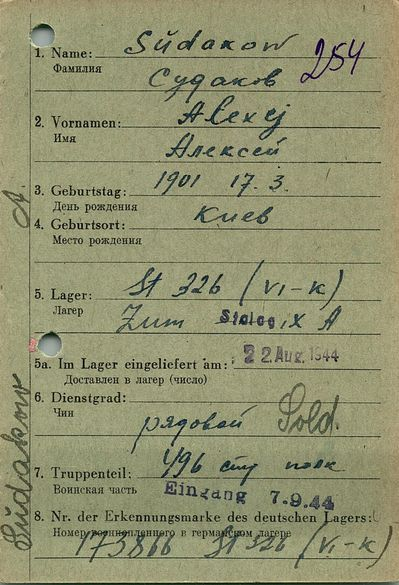 1. Name: Südakow
Фамилия Судаков
254
2. Vornamen: Alexej
Имя Алексей
3. Geburtstag: 1901 17.3.
День рождения
4. Geburtsort: Киев
Место рождения
5. Lager: St 326 (VI-K)
Лагер Zum Stalag IX A
5a. Im Lager eingeliefert am: 22. Aug. 1944
Доставлен в лагер (число)
6. Dienstgrad:
Чин рядовой Sold.
7. Truppenteil: 496 стр полк
Воинская часть Eingang 7.9.44
8. Nr. der Erkennungsmarke des deutschen Lagers:
Номер военнопленного в германском лагере
173866 St 326 (VI-K)
Südakow A.